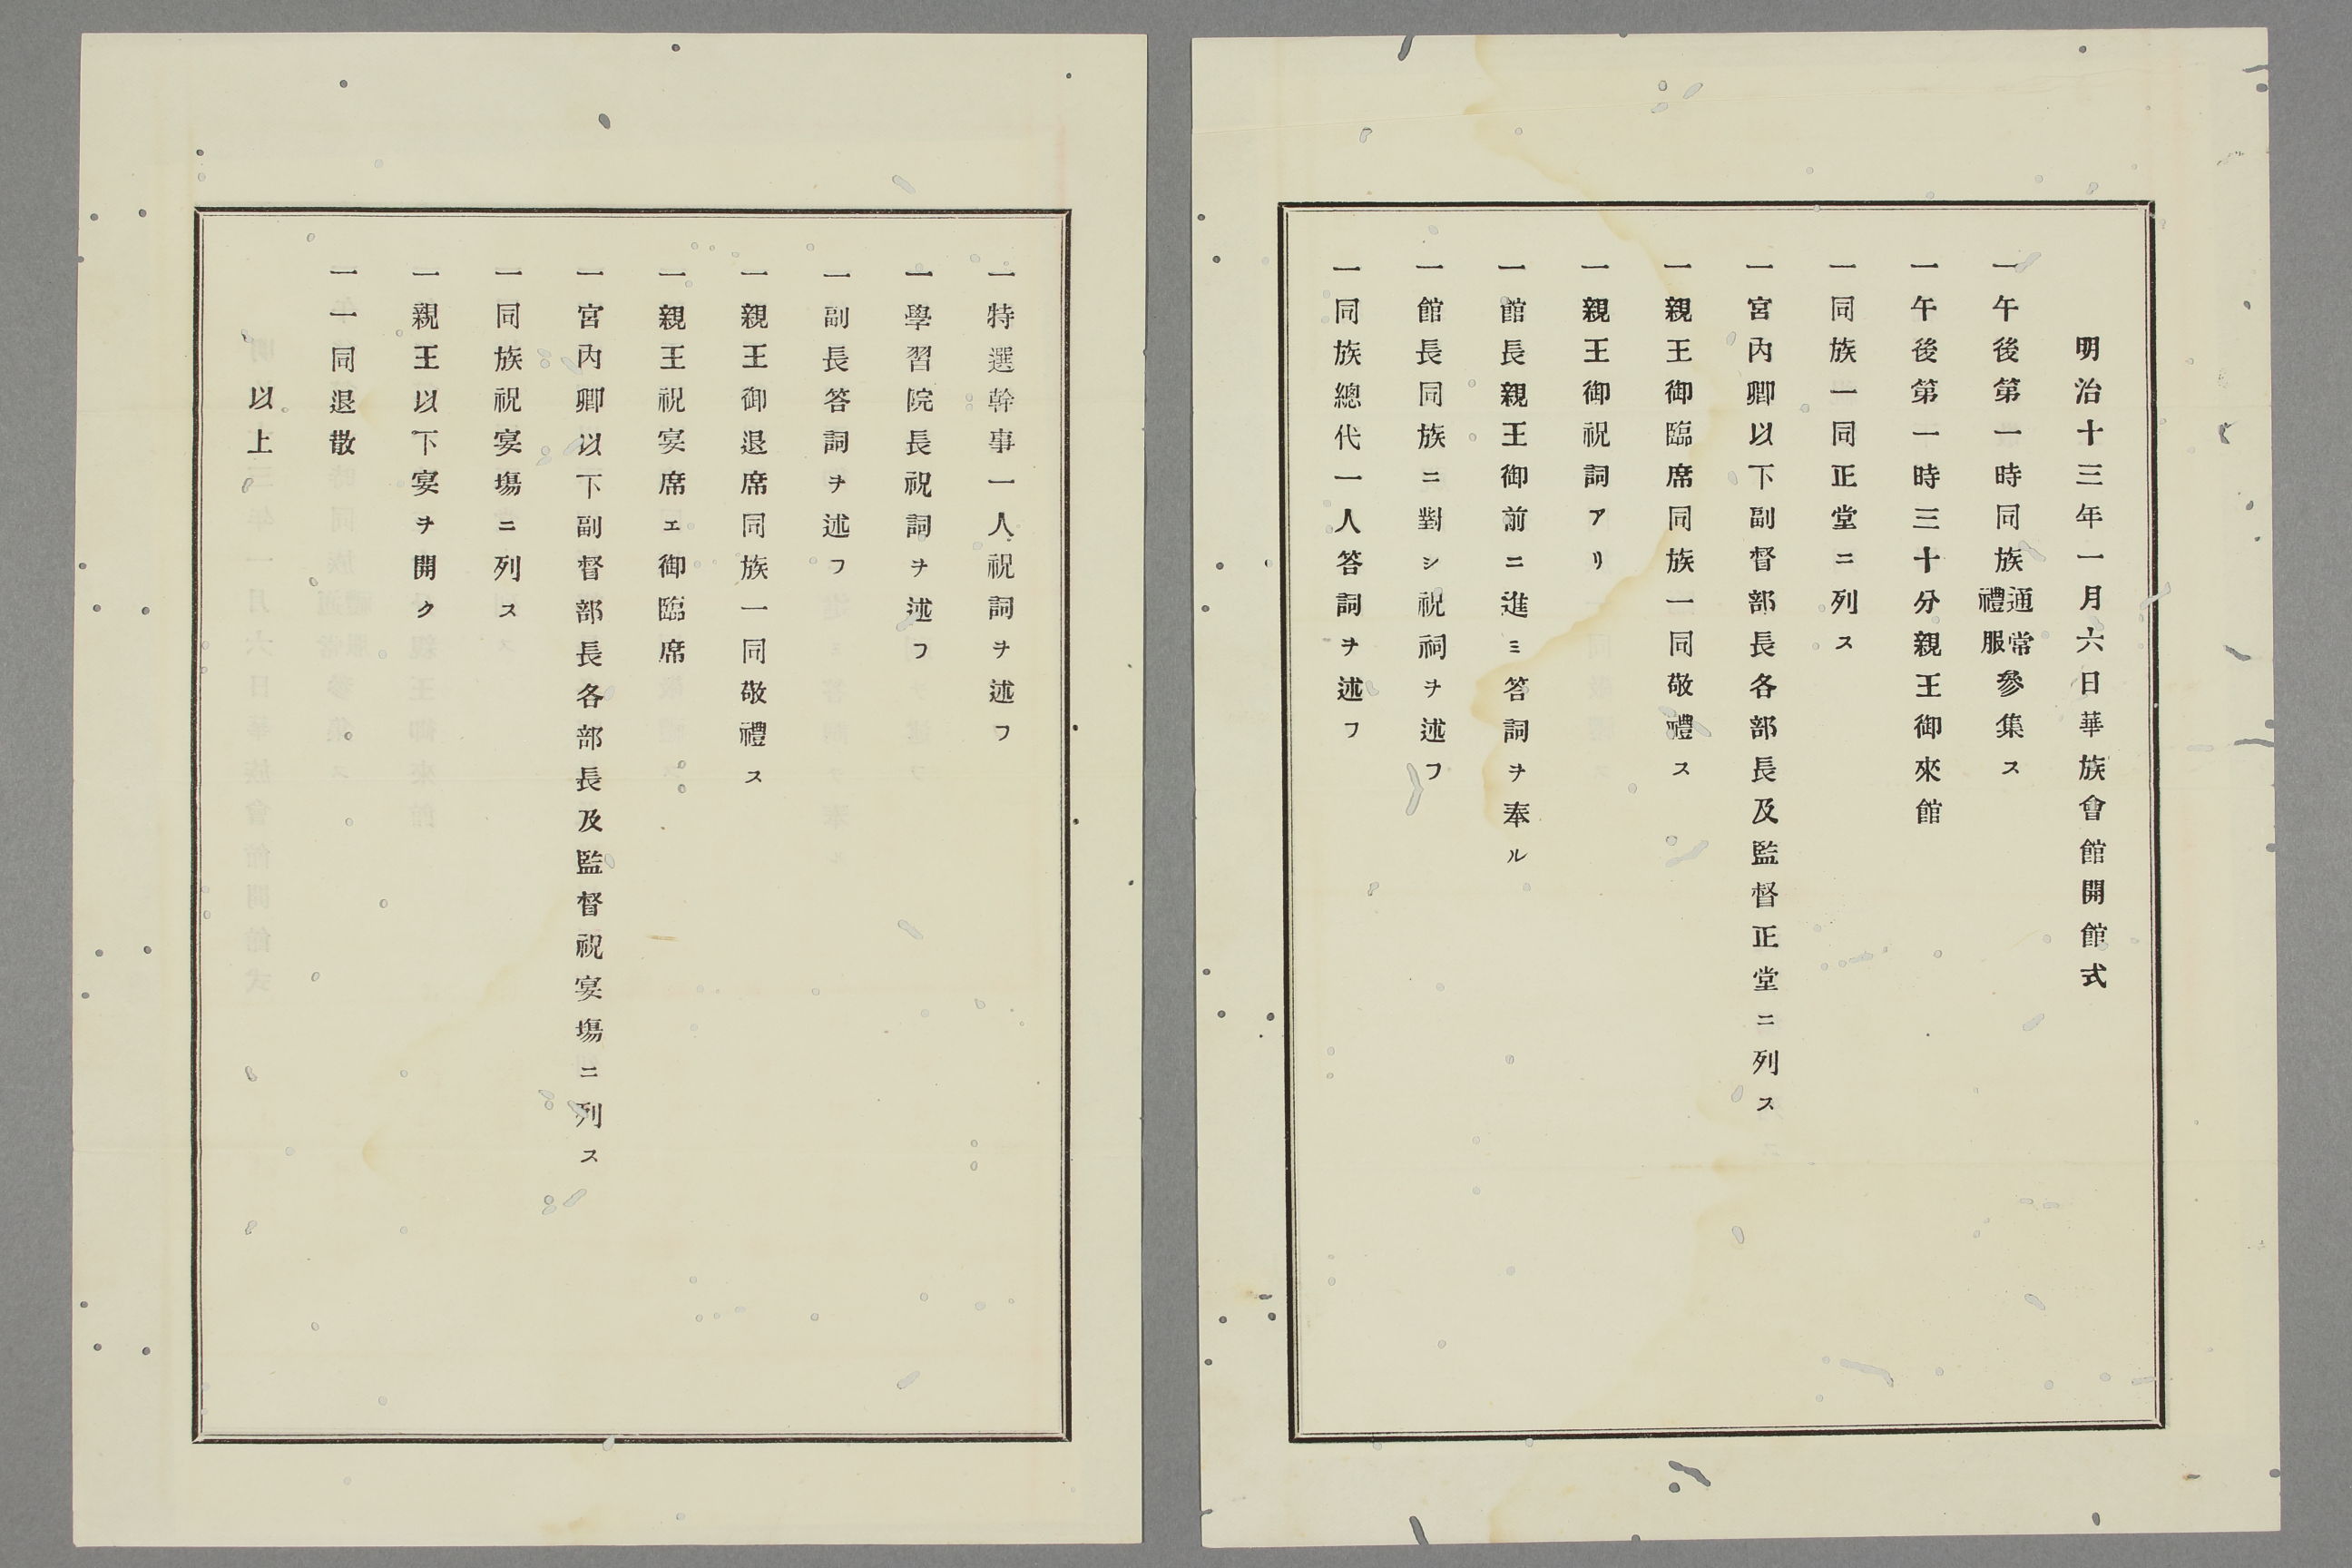 明治十三年一月六日華族會館開館式
一午後第一時同族通常禮服參集ス
一午後第一時三十分親王御來館
一同族一同正堂ニ列ス
一宮內卿以下副督部長各部長及監督正堂ニ列ス
一親王御臨席同族一同敬禮ス
一親王御祝詞アリ
一館長親王御前ニ進ミ答詞ヲ奉ル
一館長同族ニ對シ祝祠ヲ述フ
一同族總代一人答詞ヲ述フ
一特選幹事一人祝詞ヲ述フ
一學習院長祝詞ヲ述フ
一副長答詞ヲ述フ
一親王御退席同族一同敬禮ス
一親王祝宴席エ御臨席
一宮內卿以下副督部長各部長及監督祝宴塲ニ列ス
一同族祝宴塲ニ列ス
一親王以下宴ヲ開ク
一一同退散
以上